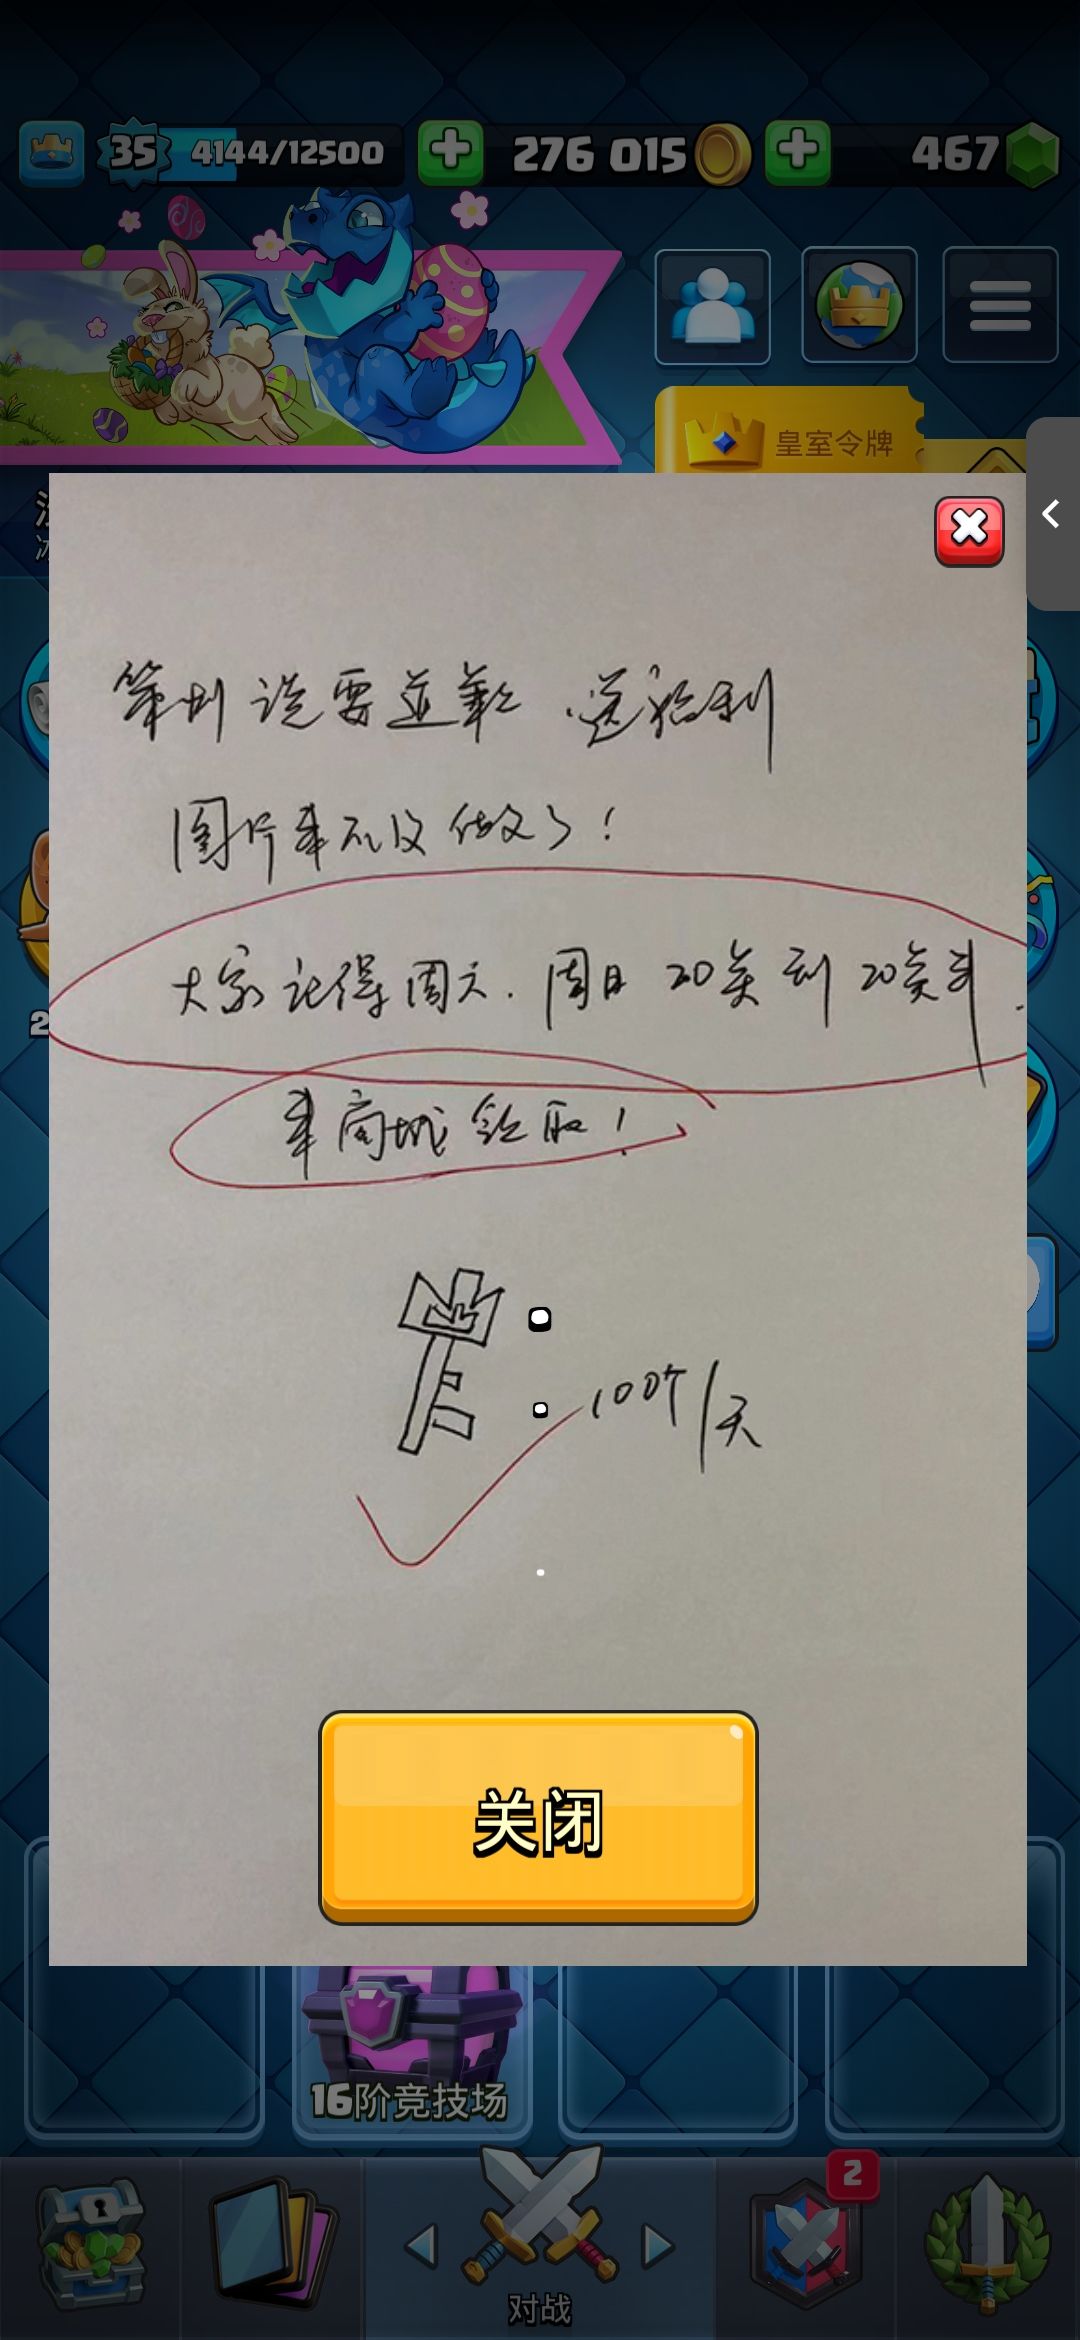 35 4144/12500 276 015 467
皇室令牌
策划说要道歉，送福利
图片来不及做了！
大家记得周六、周日 20点到20点半
来商城领取！
100个/天
关闭
16阶竞技场
2
对战